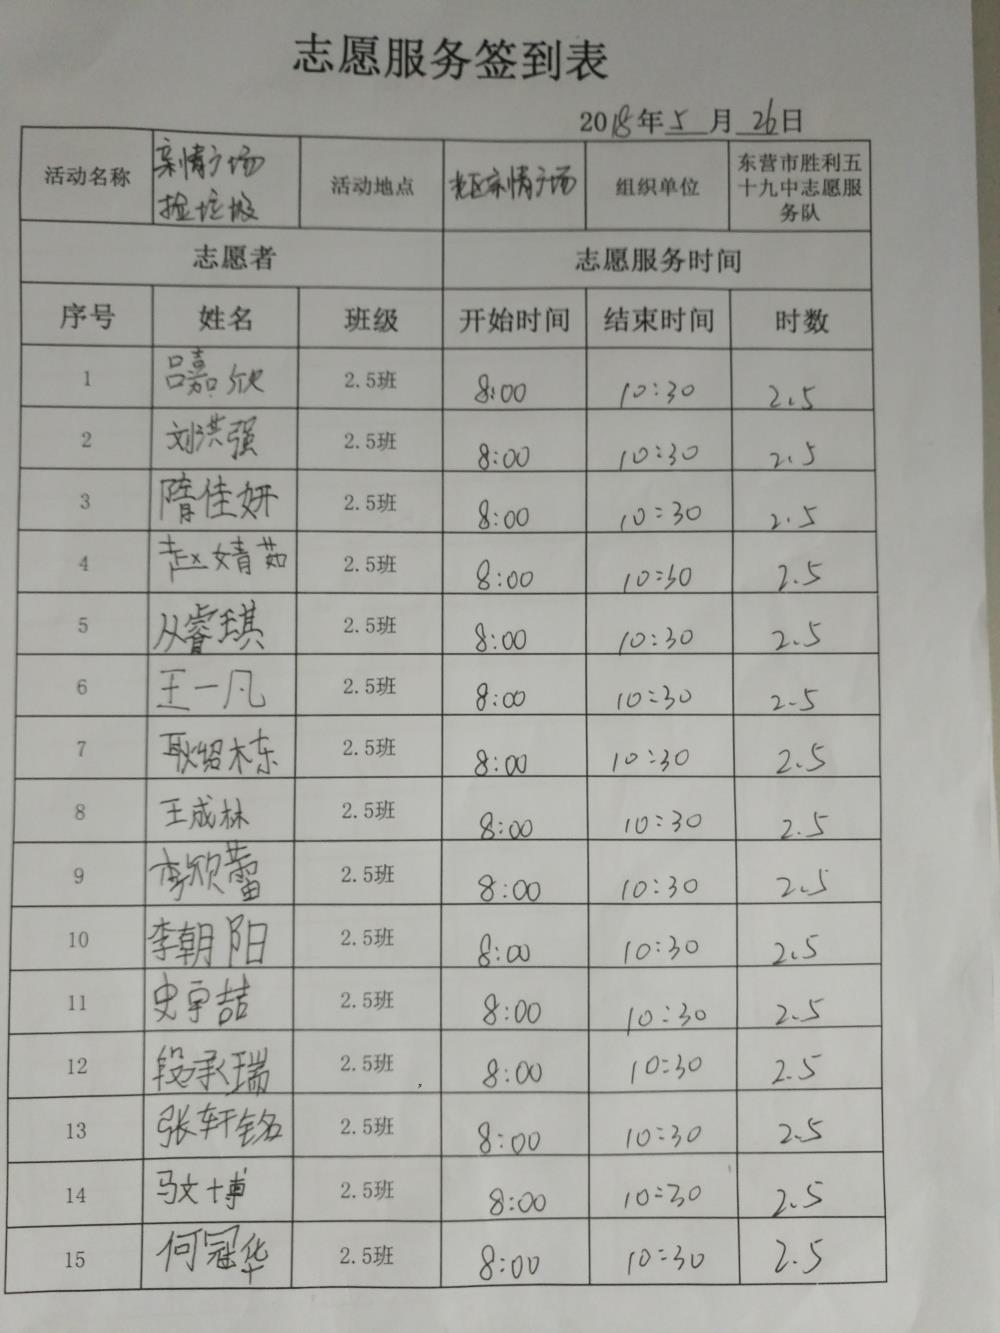 志愿服务签到表
2018年5月26日
活动名称 亲情广场 捡垃圾 活动地点 老区亲情广场 组织单位 东营市胜利五十九中志愿服务队
志愿者 志愿服务时间
序号 姓名 班级 开始时间 结束时间 时数
1 吕嘉欣 2.5班 8:00 10:30 2.5
2 刘洪强 2.5班 8:00 10:30 2.5
3 隋佳妍 2.5班 8:00 10:30 2.5
4 赵婧茹 2.5班 8:00 10:30 2.5
5 从睿琪 2.5班 8:00 10:30 2.5
6 王一凡 2.5班 8:00 10:30 2.5
7 耿绍栋 2.5班 8:00 10:30 2.5
8 王成林 2.5班 8:00 10:30 2.5
9 李欣蕾 2.5班 8:00 10:30 2.5
10 李朝阳 2.5班 8:00 10:30 2.5
11 史宇喆 2.5班 8:00 10:30 2.5
12 段承瑞 2.5班 8:00 10:30 2.5
13 张轩铭 2.5班 8:00 10:30 2.5
14 马文博 2.5班 8:00 10:30 2.5
15 何冠华 2.5班 8:00 10:30 2.5